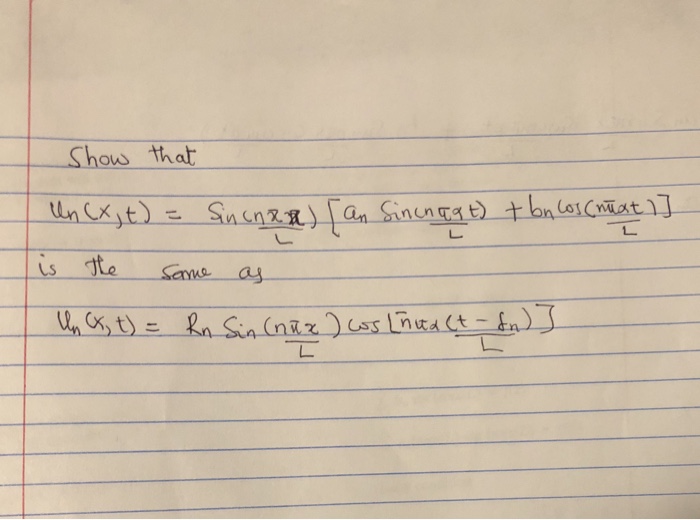 Show that
Un(x,t) = Sin(nπx/L) [an Sin(nπαt/L) + bn Cos(nπαt/L)]
is the same as
Un(x,t) = Rn Sin(nπx/L) cos[nπα(t - δn)/L]